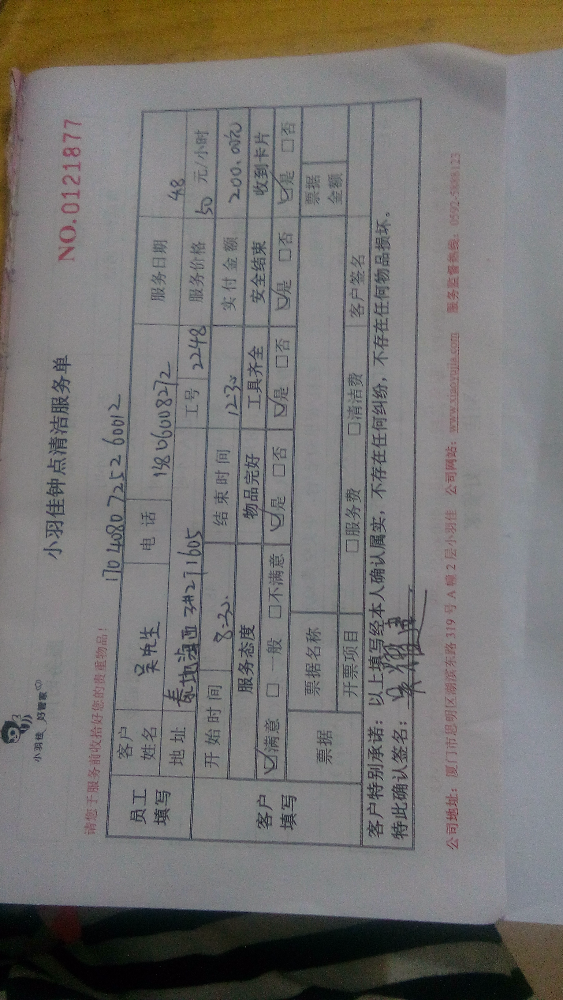 小羽佳 好管家
小羽佳钟点清洁服务单
NO.01219877
请您于服务前收拾好您的贵重物品!
1704080725260012
员工填写
客户姓名 吴先生 电话 14806008272 服务日期 4.8
地址 泰地海西3#271605 工号 2248 服务价格 50 元/小时
开始时间 8:30 结束时间 12:30 实付金额 200.00元
客户填写
服务态度 物品完好 工具齐全 安全结束 收到卡片
☑满意 □一般 □不满意 ☑是 □否 ☑是 □否 ☑是 □否 ☑是 □否
票据 票据名称 票据金额
开票项目 □服务费 □清洁费 客户签名
客户特别承诺:以上填写经本人确认属实,不存在任何纠纷,不存在任何物品损坏。
特此确认签名:
公司地址:厦门市思明区湖滨东路319号A幢2层小羽佳 公司网站:www.xiaoyujia.com 服务监督热线:0592-5888123